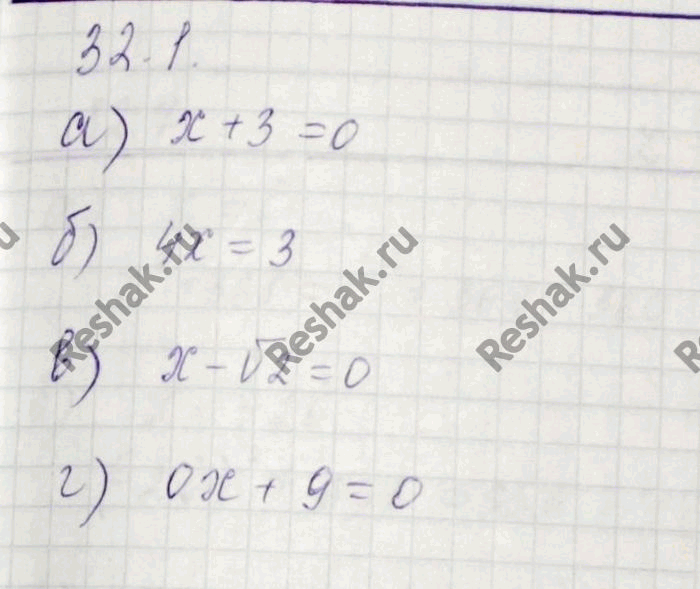 32.1.
а) x + 3 = 0
б) 4x = 3
в) x - √2 = 0
г) 0x + 9 = 0
Reshak.ru
Reshak.ru
Reshak.ru